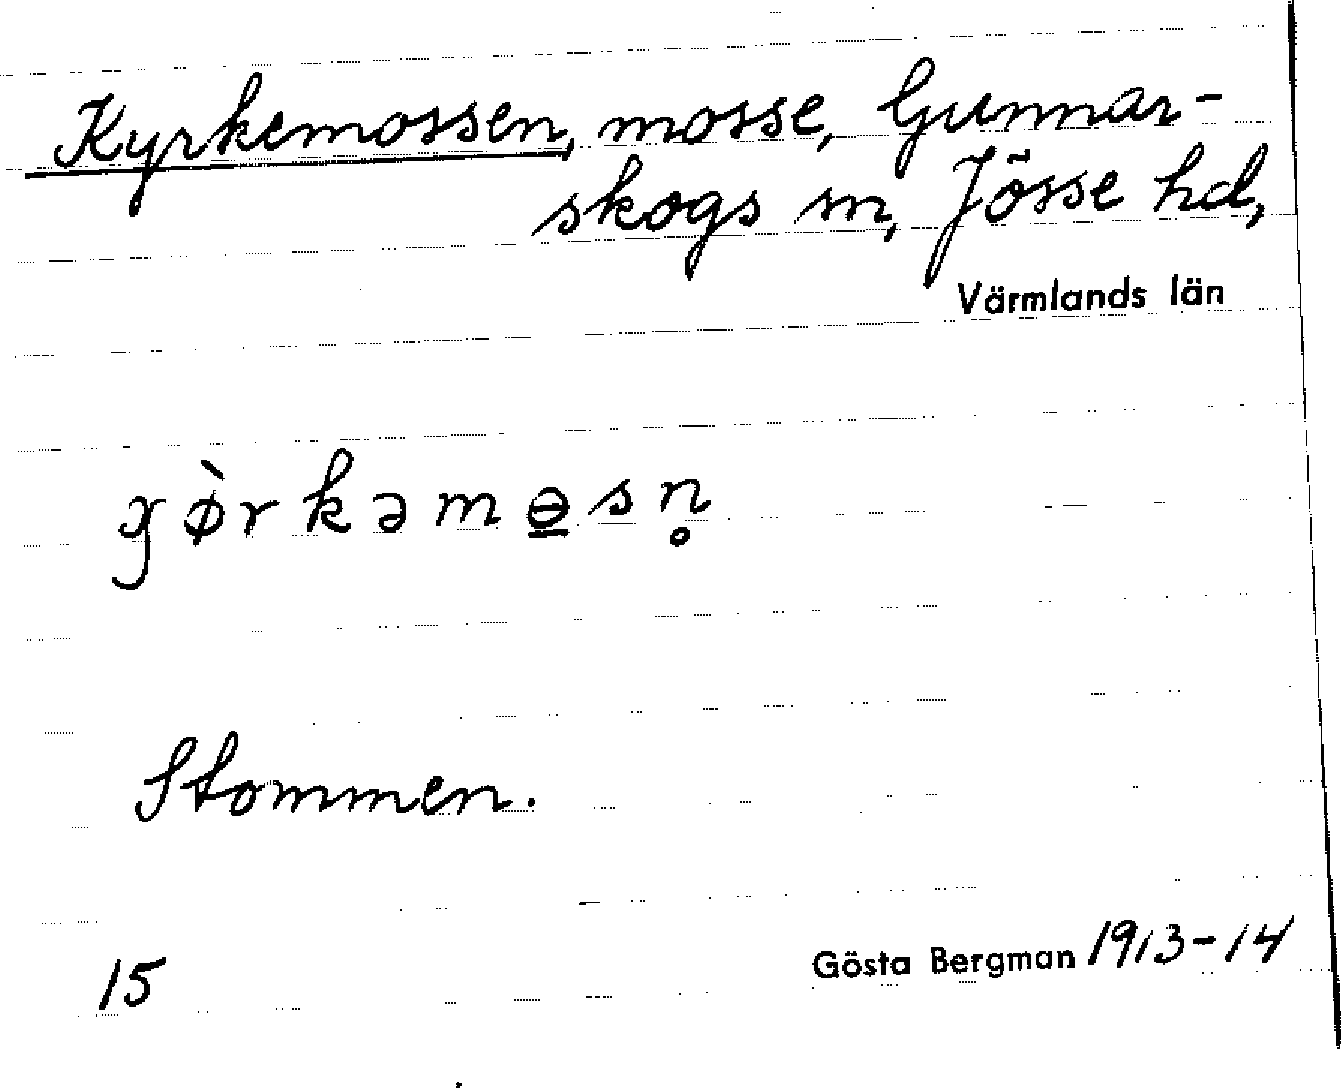 Kyrkemossen, mosse, Gunnar-
skogs sn, Jösse hd,
Värmlands län
ɟø̀rkəmɵ̲sn̥
Stommen.
15
Gösta Bergman 1913-14